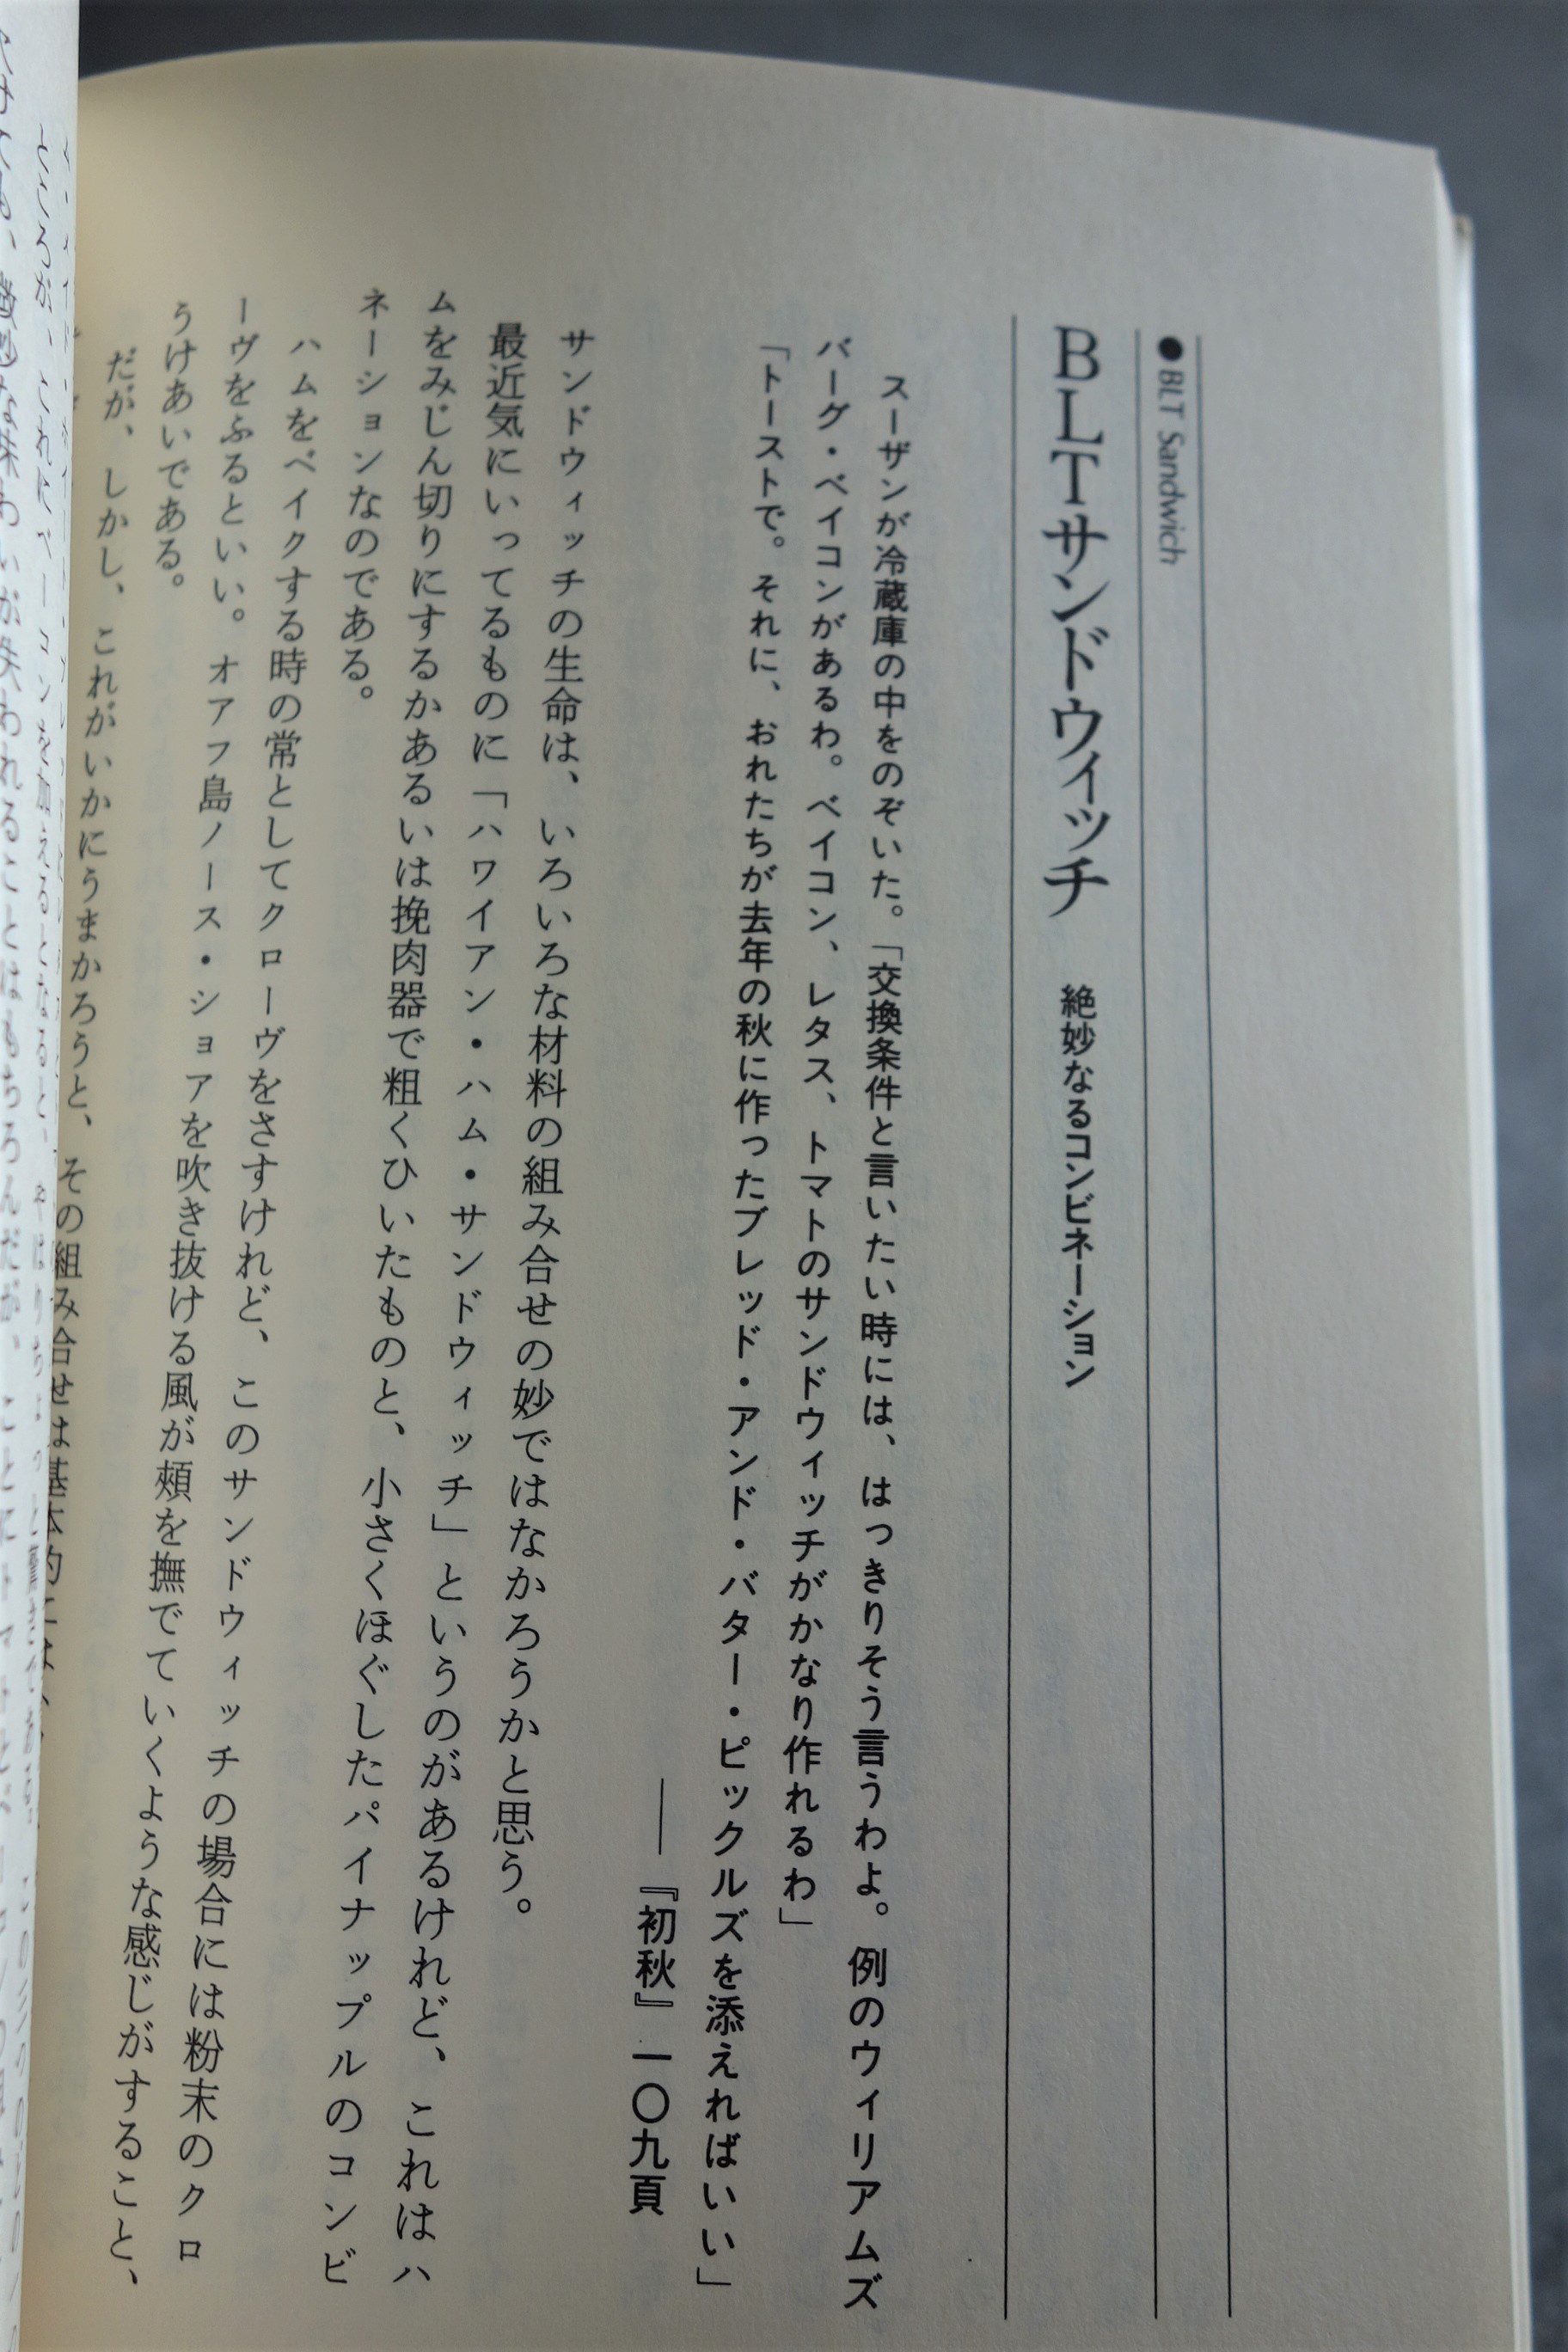 ●BLT Sandwich
BLTサンドウィッチ　絶妙なるコンビネーション
スーザンが冷蔵庫の中をのぞいた。「交換条件と言いたい時には、はっきりそう言うわよ。例のウィリアムズ
バーグ・ベイコンがあるわ。ベイコン、レタス、トマトのサンドウィッチがかなり作れるわ」
「トーストで。それに、おれたちが去年の秋に作ったブレッド・アンド・バター・ピックルズを添えればいい」
――『初秋』一〇九頁
サンドウィッチの生命は、いろいろな材料の組み合せの妙ではなかろうかと思う。
最近気にいってるものに「ハワイアン・ハム・サンドウィッチ」というのがあるけれど、これはハ
ムをみじん切りにするかあるいは挽肉器で粗くひいたものと、小さくほぐしたパイナップルのコンビ
ネーションなのである。
ハムをベイクする時の常としてクローヴをさすけれど、このサンドウィッチの場合には粉末のクロ
ーヴをふるといい。オアフ島ノース・ショアを吹き抜ける風が頬を撫でていくような感じがすること、
うけあいである。
だが、しかし、これがいかにうまかろうと、その組み合せは基本的には